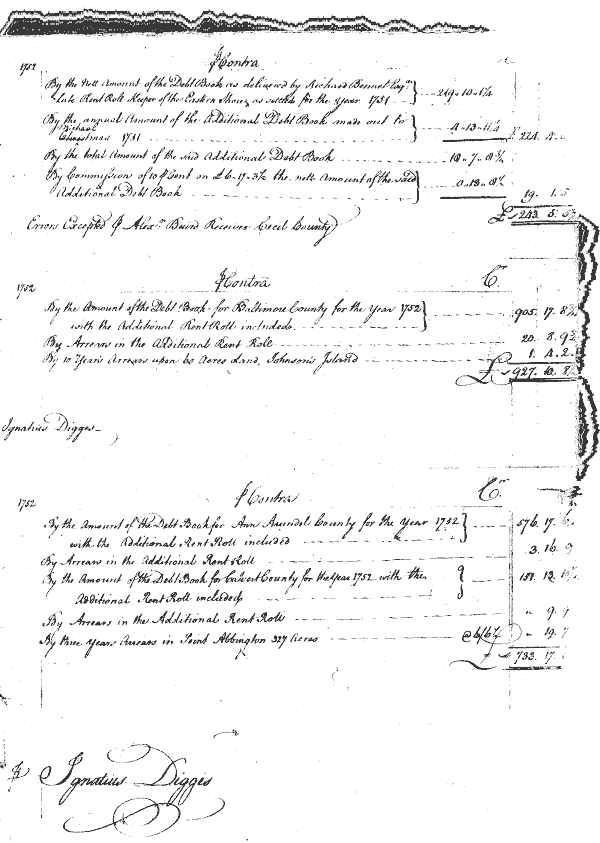 1752 ⅌ Contra
By the Nett Amount of the Debt Book as delivered by Richard Bennet Esqr.
late Rent Roll Keeper of the Eastern Shore, as settled for the Year 1751 } 219-10-1¼
By the annual Amount of the Additional Debt Book made out to
Michael
Christmas 1751 } 4-13-11¼ £ 224. 4.
By the total Amount of the said Additional Debt Book 18-7-8¾
By Commission of 10 ⅌ Cent on £6-17-3¾ the nett Amount of the said
Additional Debt Book } 0-13-8¾ 19. 1. 5
£ 243. 5. 5½
Errors Excepted ⅌ Alexr. Baird Receiver Cecil County
1752 ⅌ Contra Cr.
By the Amount of the Debt Book for Baltimore County for the Year 1752
with the Additional Rent Roll included } 905. 17. 8¾
By Arrears in the Additional Rent Roll 20. 8. 9¾
By 10 Years Arrears upon 60 Acres Land, Johnson's Island 1. 4. 2
£ 927. 10. 8½
Ignatius Digges
1752 ⅌ Contra Cr.
By the Amount of the Debt Book for Ann Arundel County for the Year 1752
with the Additional Rent Roll included } 576. 17. 6
By Arrears in the Additional Rent Roll 3. 16. 9
By the Amount of the Debt Book for Calvert County for the Year 1752 with the
Additional Rent Roll included } 151. 13. 10½
By Arrears in the Additional Rent Roll " 9. 9
By three Years Arrears in Point Abbington 327 Acres @ 6/6½ " 19. 7
£ 733. 17.
⅌ Ignatius Digges